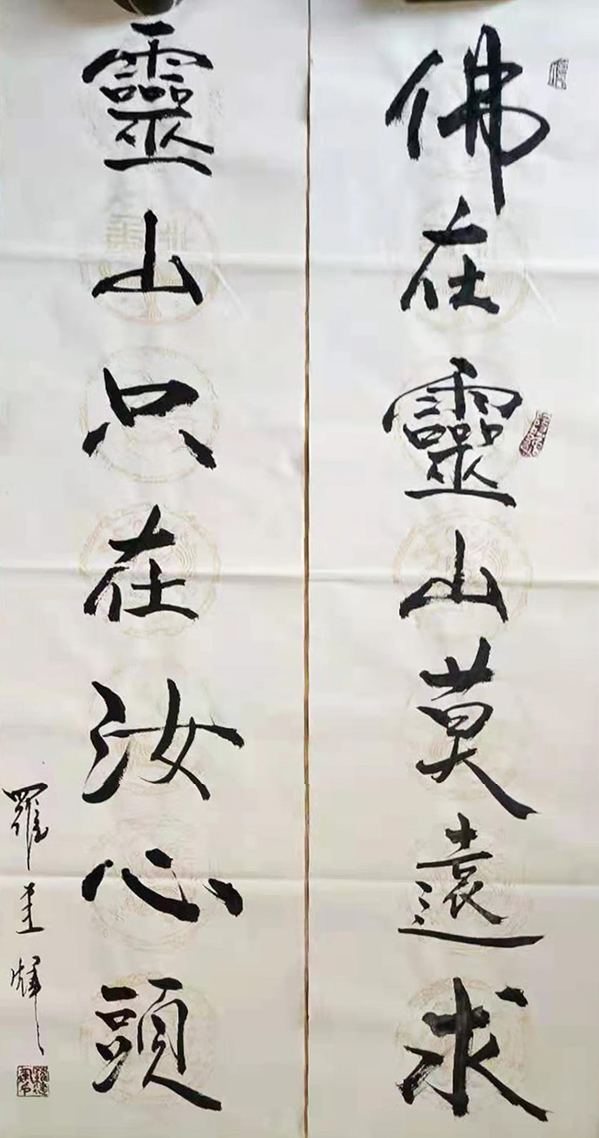 佛在靈山莫遠求
靈山只在汝心頭
羅圭輝